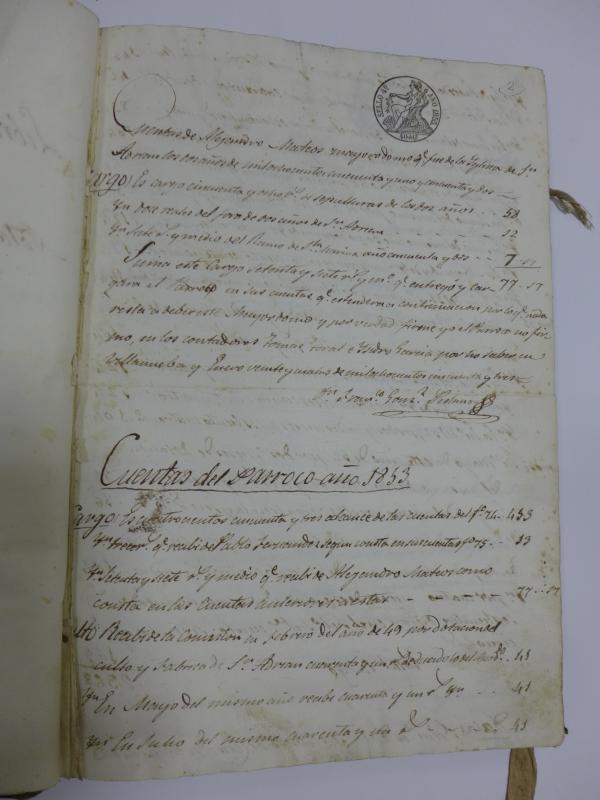 2
SELLO 4º AÑO 1853
Cuentas de Alejandro Mateos mayordomo q.e fue de la Yglesia de Sn
Adrian los dos años de mil ochocientos cincuenta y uno y cincuenta y dos
Cargo Es cargo cincuenta y ocho r.s de sepulturas de los dos años 58
Yn doce reales del foro de dos años de Sn Adrian 12
Yn siete r.s y medio del Ramo de Sta Marina año cincuenta y dos 7 " 17
Suma este Cargo setenta y siete r.s y m.o q.e entregó y car- 77 " 17
gara el Parroco en las cuentas q.e estenderá a continuacion por lo q.e nada
resta a deber este Mayordomo y por verdad firmo yo el Parroco no fir
mo, en los contadores Tomas Toral e Ysidro Garcia por no saber en
Villanueba y Enero veinte y cuatro de mil ochocientos cincuenta y tres
Franco Gonz.z
Cuentas del Parroco año 1853
Cargo Es cuatrocientos cincuenta y tres alcance de las cuentas del fo 74 453
Yn trece r.s q.e recibi de Pablo Fernandez segun consta en sus cuentas fo 75 13
Yn setenta y siete r.s y medio q.e recibi de Alejandro Mateos como
consta en las cuentas anteriores a estas 77 " 17
Recibi de la Comision en febrero del año de 49 por dotacion del
culto y fabrica de Sn Adrian cuarenta y un r.s 41
Yn En Mayo del mismo año recibi cuarenta y un r.s 41
Yn En Julio del mismo cuarenta y un r.s 41